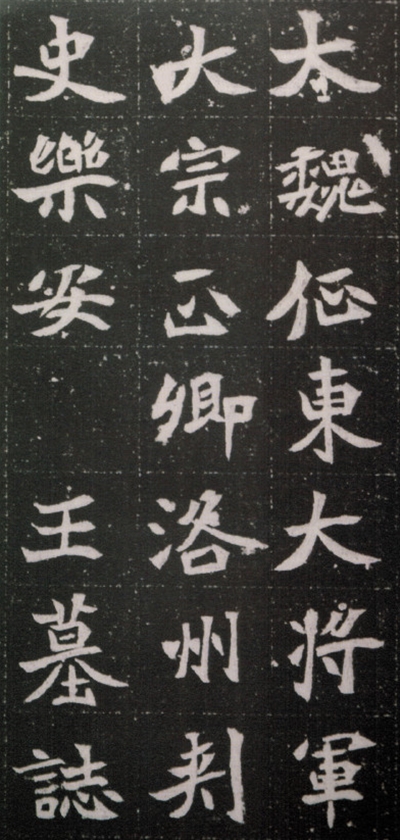 大魏征東大將軍
大宗正卿洛州刺
史樂安王墓誌